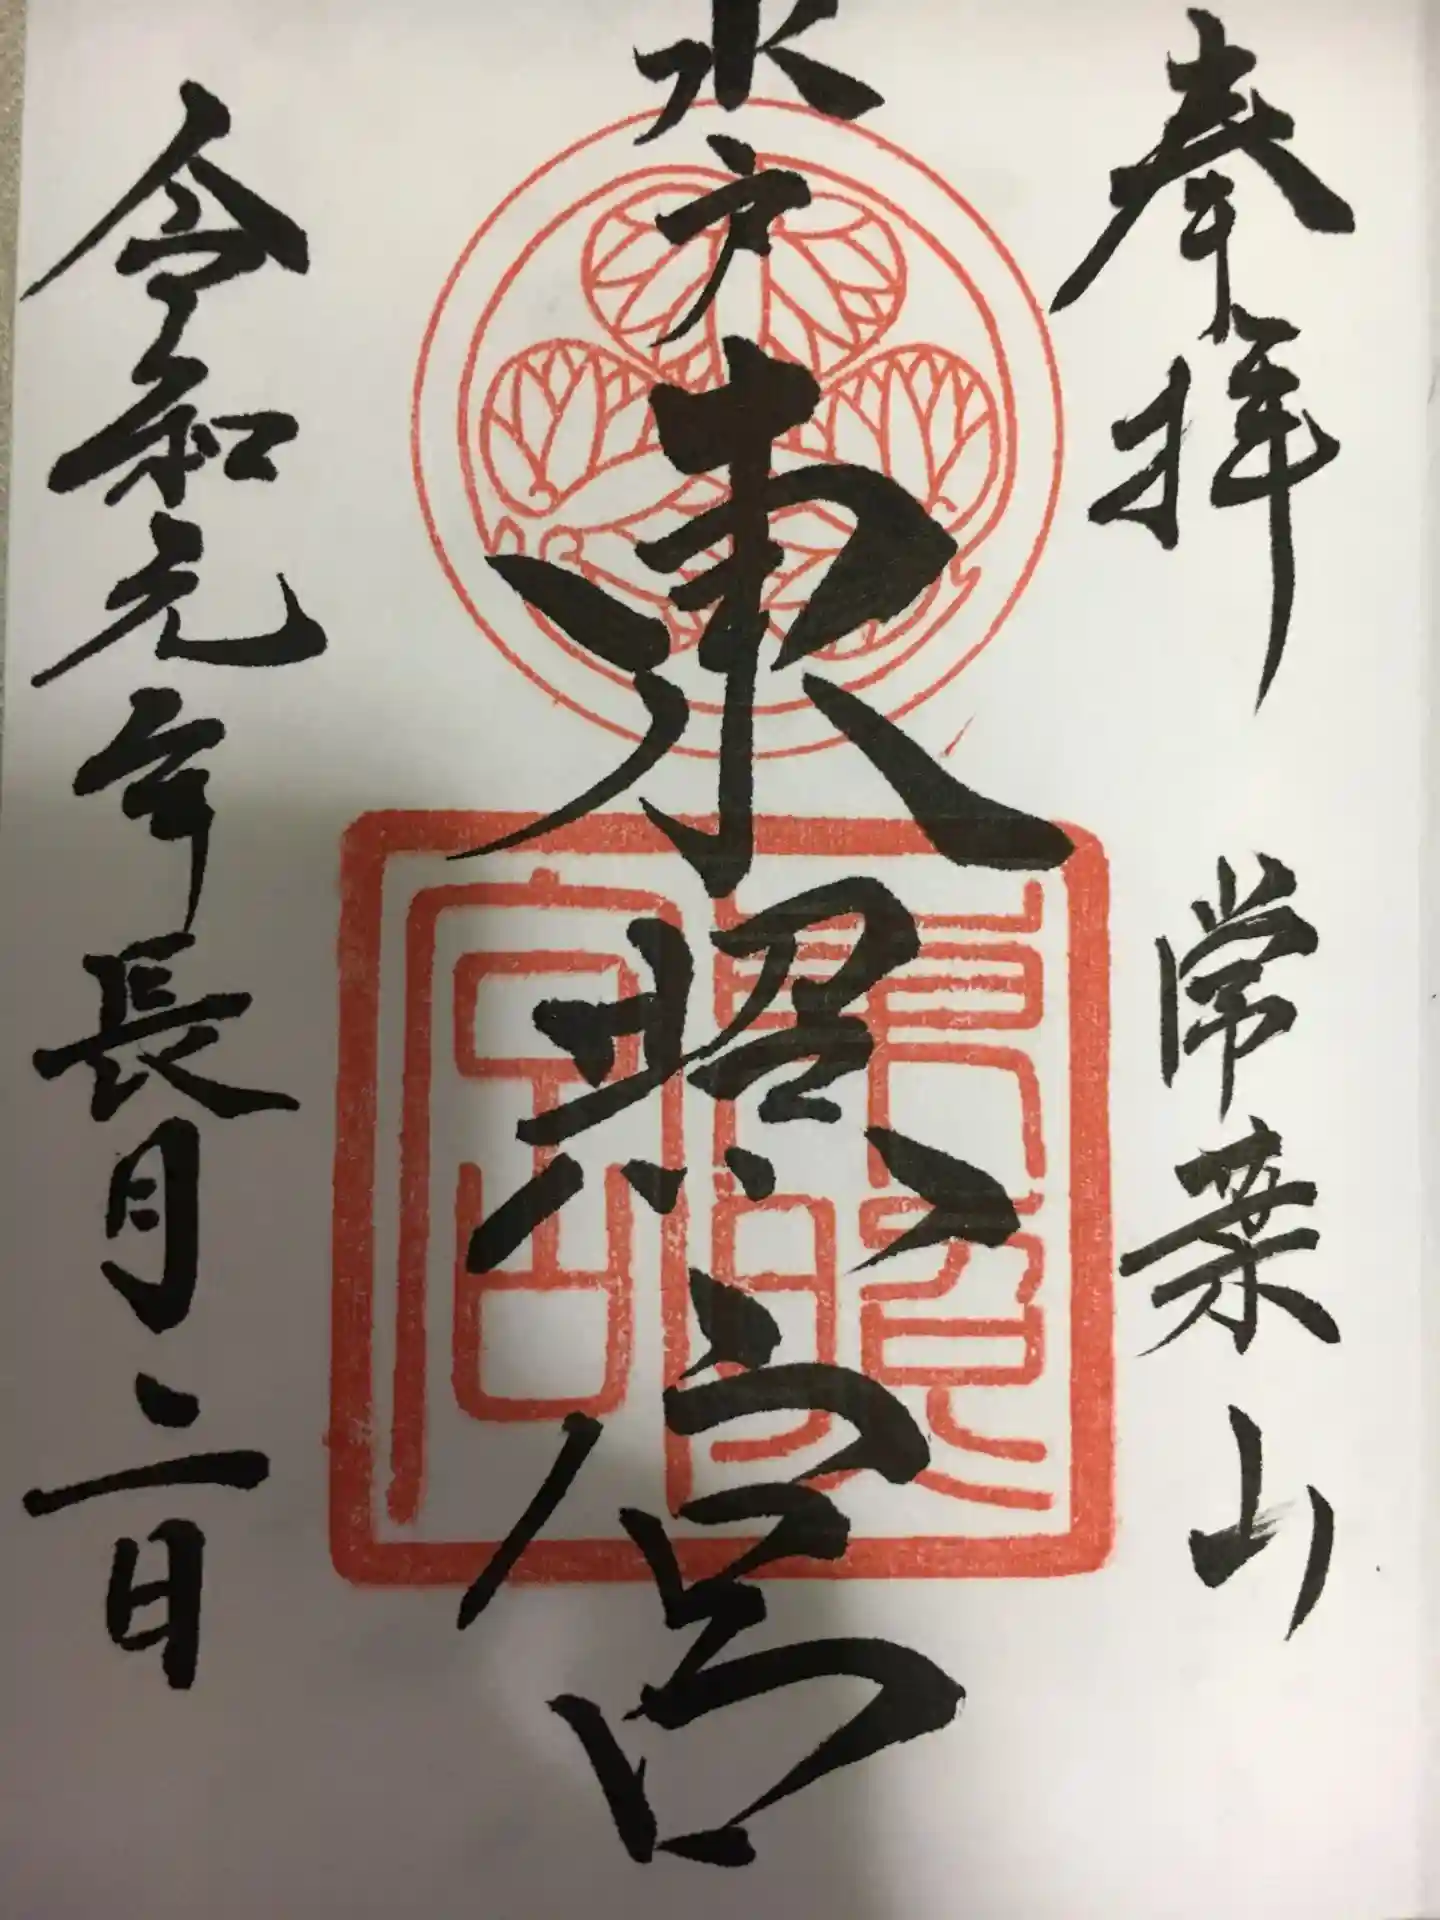 奉拝 常葉山
水戸東照宮
東照宮
令和元年長月二日